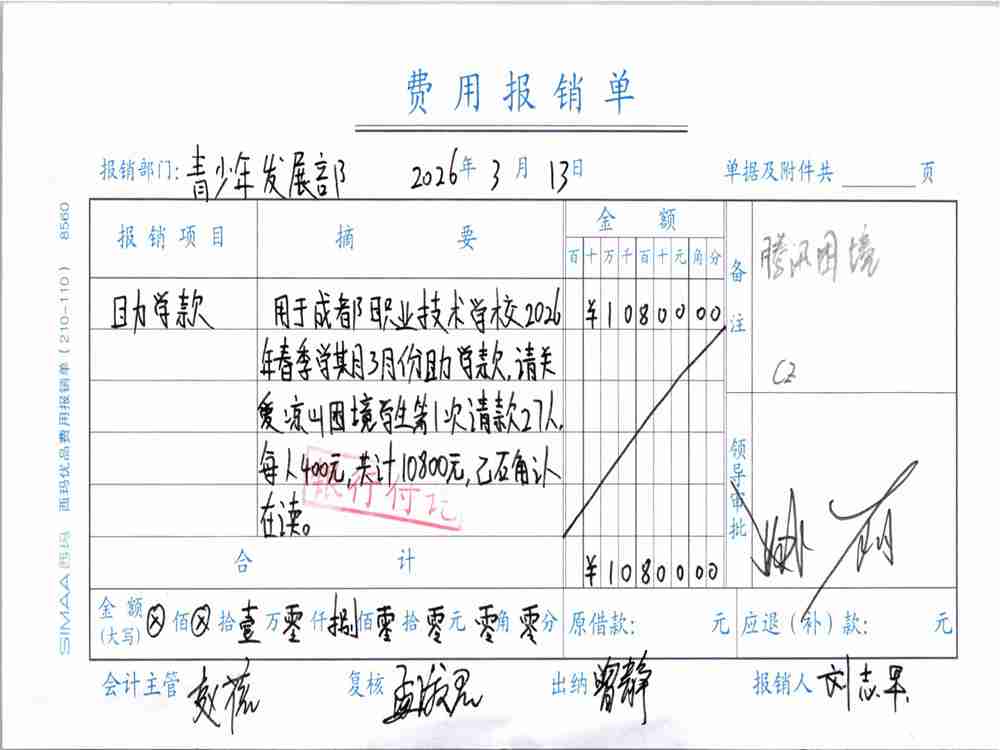 费用报销单
报销部门：青少年发展部 2026年3月13日 单据及附件共 页
报销项目 摘要 金额 备注
百十万千百十元角分
腾讯困境
助学款 用于成都职业技术学校2026 ¥1080000
年春季学期3月份助学款,请关
CZ
爱凉山困境学生第1次请款27人,
每人400元,共计10800元,已石角认
在读。
银行付讫
领导审批
合计 ¥1080000
金额(大写) ⊗佰⊗拾壹万零仟捌佰零拾零元零角零分 原借款: 元 应退(补)款: 元
会计主管 复核 出纳 曾静 报销人 刘志军
SIMAA 西玛 西玛优品费用报销单(210-110) 8560